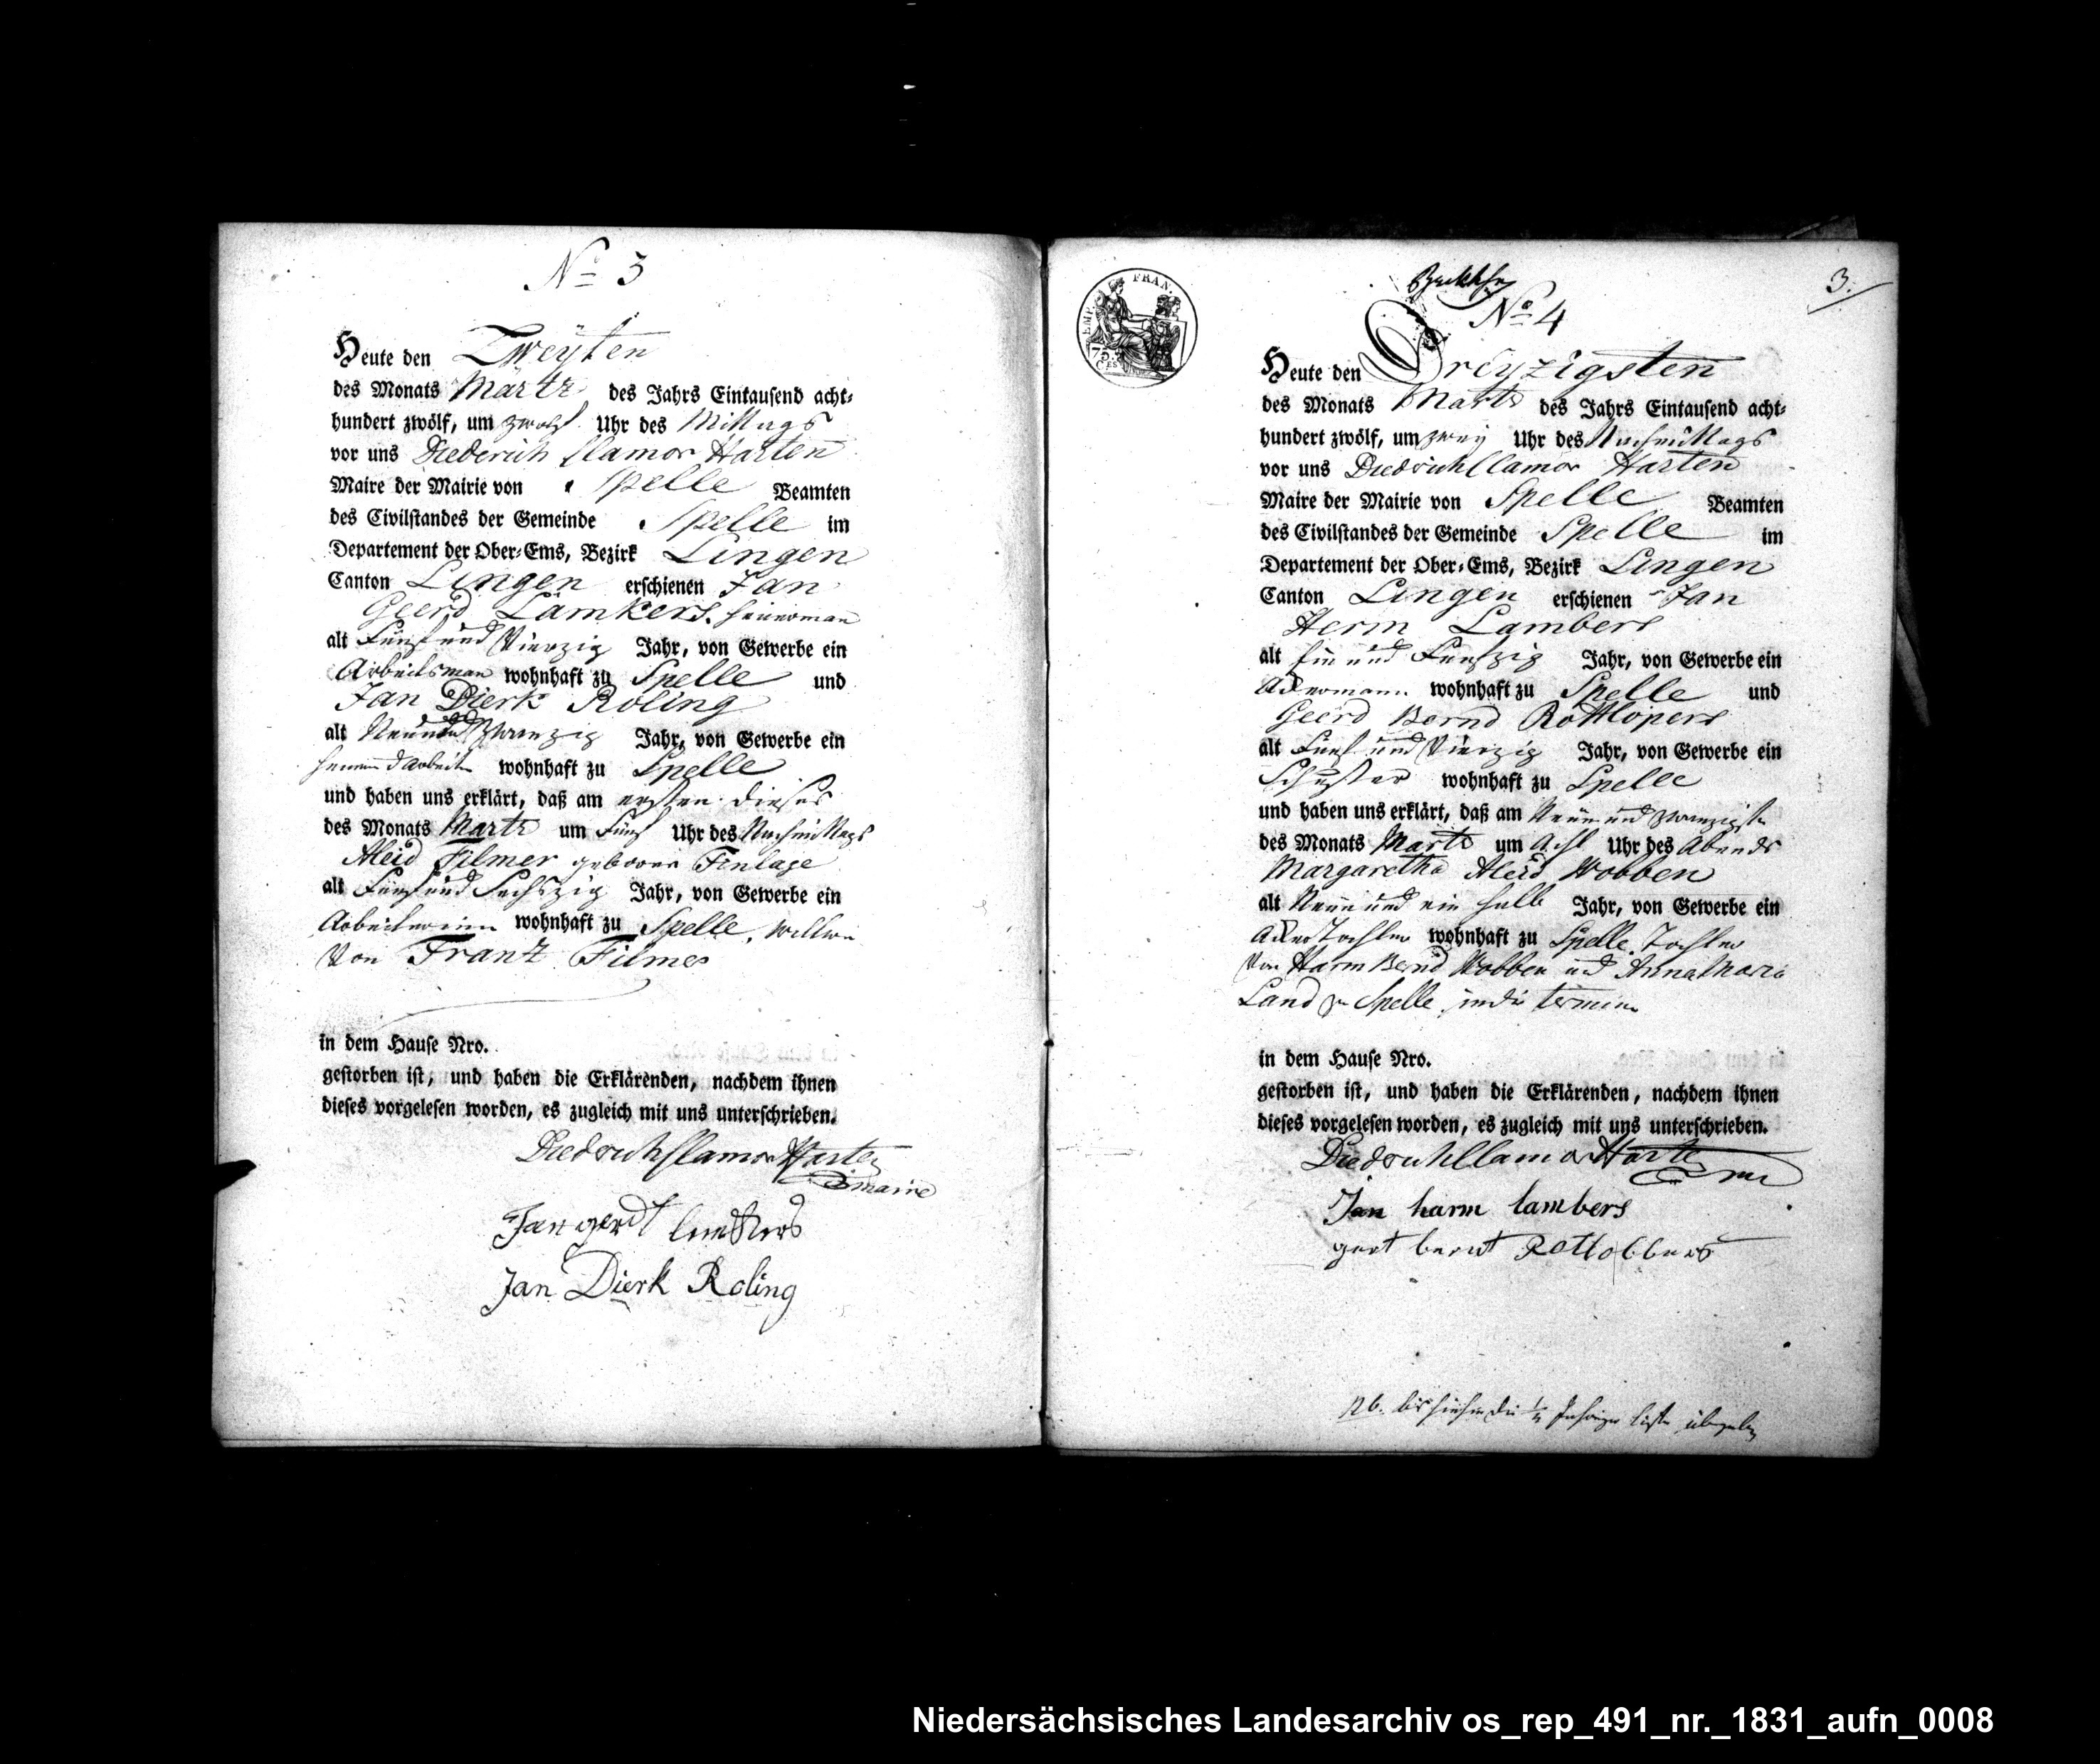 No 3
Heute den Zweyten
des Monats Martz des Jahrs Eintausend acht-
hundert zwölf, um zwölf Uhr des Mittags
vor uns Diederich Clamor Harten
Maire der Mairie von Spelle Beamten
des Civilstandes der Gemeinde Spelle im
Departement der Ober-Ems, Bezirk Lingen
Canton Lingen erschienen Jan
Geerd Lämkers. heuerman
alt Fünf und Vierzig Jahr, von Gewerbe ein
Arbeitsman wohnhaft zu Spelle und
Jan Dierk Roling
alt Neun und Zwanzig Jahr, von Gewerbe ein
wohnhaft zu Spelle
und haben uns erklärt, daß am ersten dieses
des Monats Martz um Fünf Uhr des Nachmittags
Aleid Filmer geborne Finlage
alt Fünf und Sechszig Jahr, von Gewerbe ein
Arbeiterinn wohnhaft zu Spelle, Wittwe
Von Frantz Filmer
in dem Hause Nro.
gestorben ist, und haben die Erklärenden, nachdem ihnen
dieses vorgelesen worden, es zugleich mit uns unterschrieben.
Diedrich Clamor Harten
maire
Jan gerdt
Jan Dierk Roling
EMP. FRAN.
75.
CES
3.
No 4
Heute den Dreyzigsten
des Monats Marts des Jahrs Eintausend acht-
hundert zwölf, um zwey Uhr des Nachmittags
vor uns Diedrich Clamor Harten
Maire der Mairie von Spelle Beamten
des Civilstandes der Gemeinde Spelle im
Departement der Ober-Ems, Bezirk Lingen
Canton Lingen erschienen Jan
Herm Lambers
alt Ein und Fünfzig Jahr, von Gewerbe ein
Ackermann wohnhaft zu Spelle und
Geerd Bernd Rottlopers
alt Fünf und Vierzig Jahr, von Gewerbe ein
Schuster wohnhaft zu Spelle
und haben uns erklärt, daß am Neun und zwanzigsten
des Monats Marts um Acht Uhr des Abends
Margaretha Aleid Wobben
alt Neun und ein halb Jahr, von Gewerbe ein
Ackertochter wohnhaft zu Spelle, Tochter
Von Harm Bernd Wobben und Anna Maria
Land zu Spelle
in dem Hause Nro.
gestorben ist, und haben die Erklärenden, nachdem ihnen
dieses vorgelesen worden, es zugleich mit uns unterschrieben.
Diedrich Clamor Harten
Jan harm lambers
gert bernt Rottobbers
Nb. bis hiehin die Jahriger liste übergeben
Niedersächsisches Landesarchiv os_rep_491_nr._1831_aufn_0008